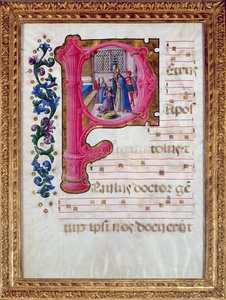 Petrus
apos
tolus et
Paulus doctor gē
tiuʒ ipsi nos docuerūt